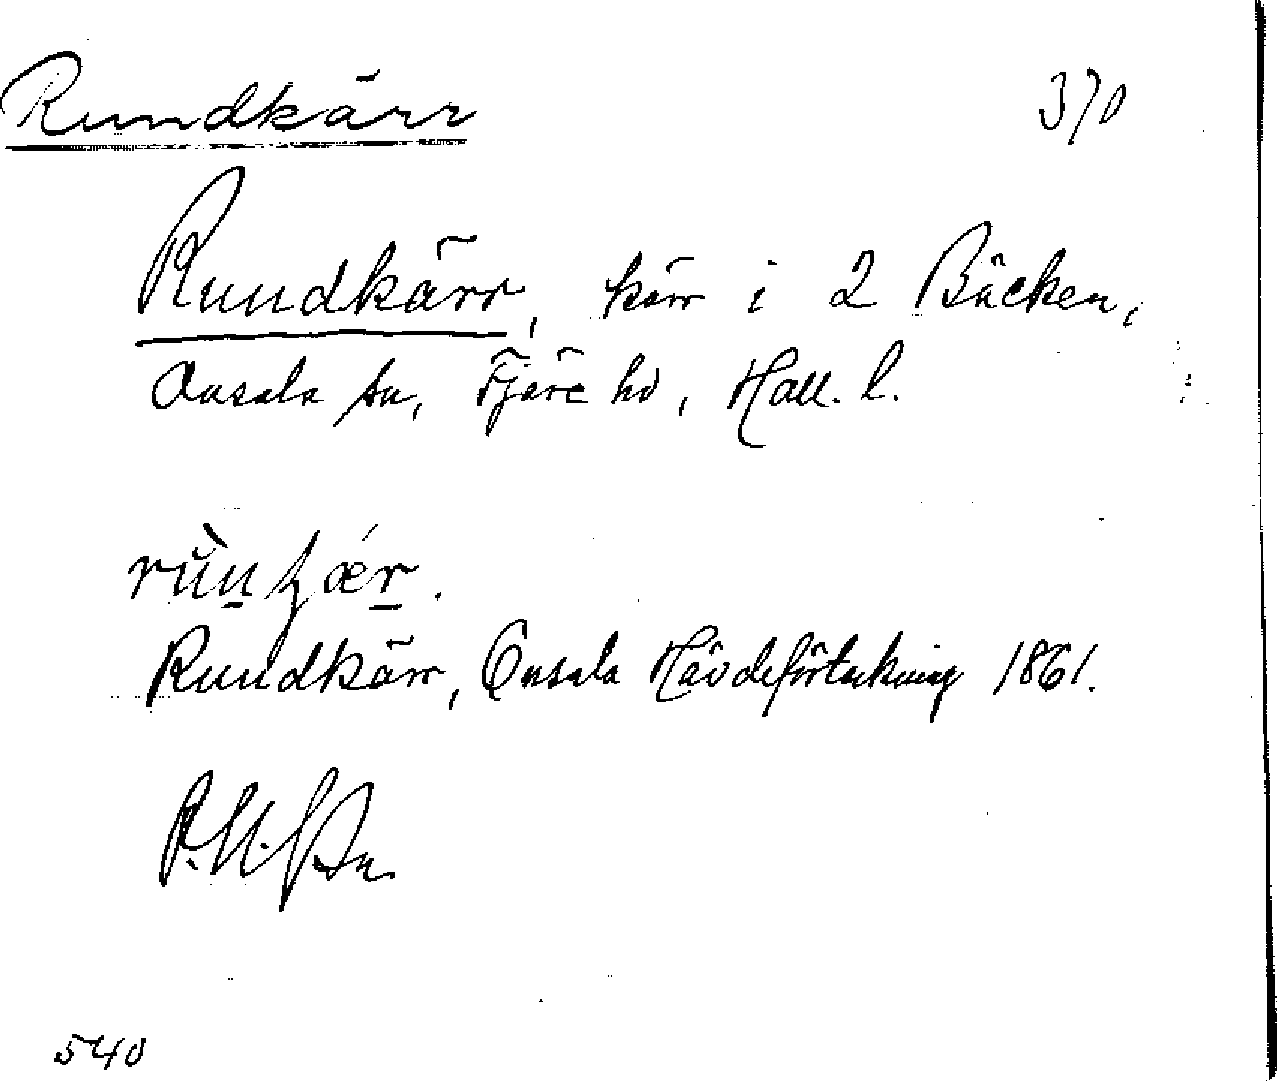 Rundkärr 370
Rundkärr, kärr i 2 Bäcken,
Onsala sn, Fjäre hd, Hall. l.
Rundkärr, Onsala Hävdeförteckning 1861.
540